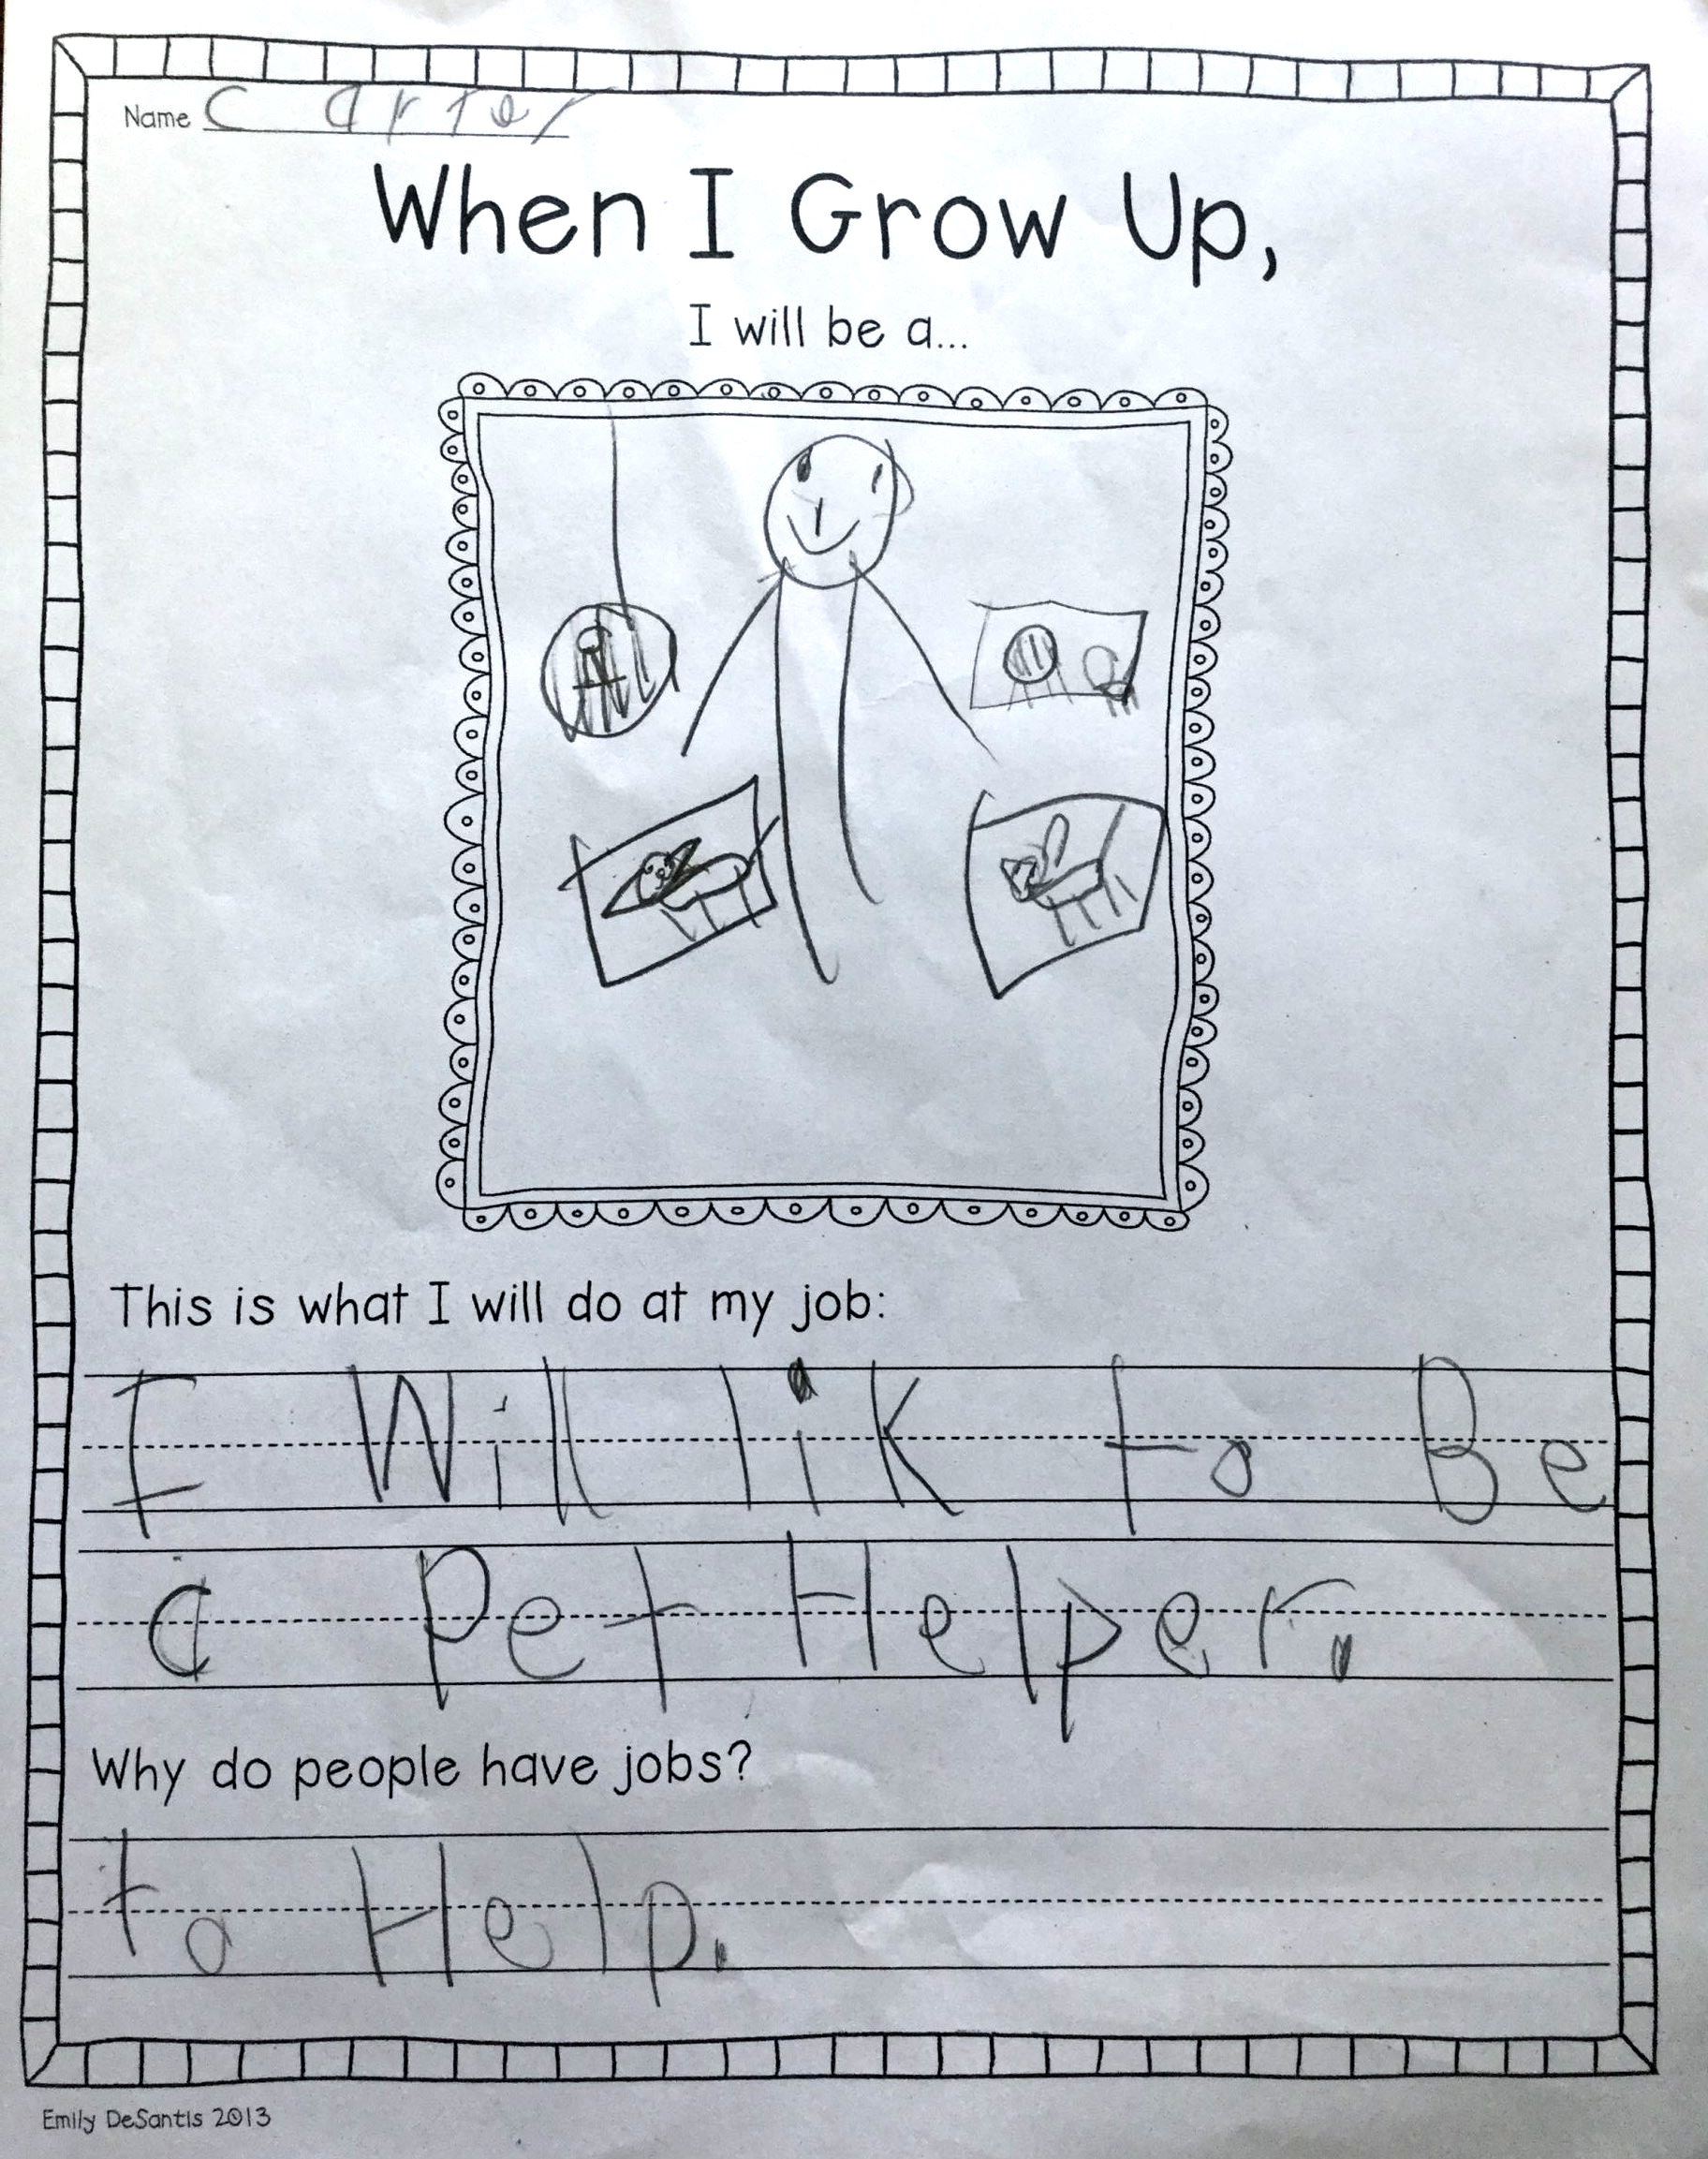 Name Carter
When I Grow Up,
I will be a...
This is what I will do at my job:
I Will lik to Be
a Pet Helper.
Why do people have jobs?
to Help.
Emily DeSantis 2013